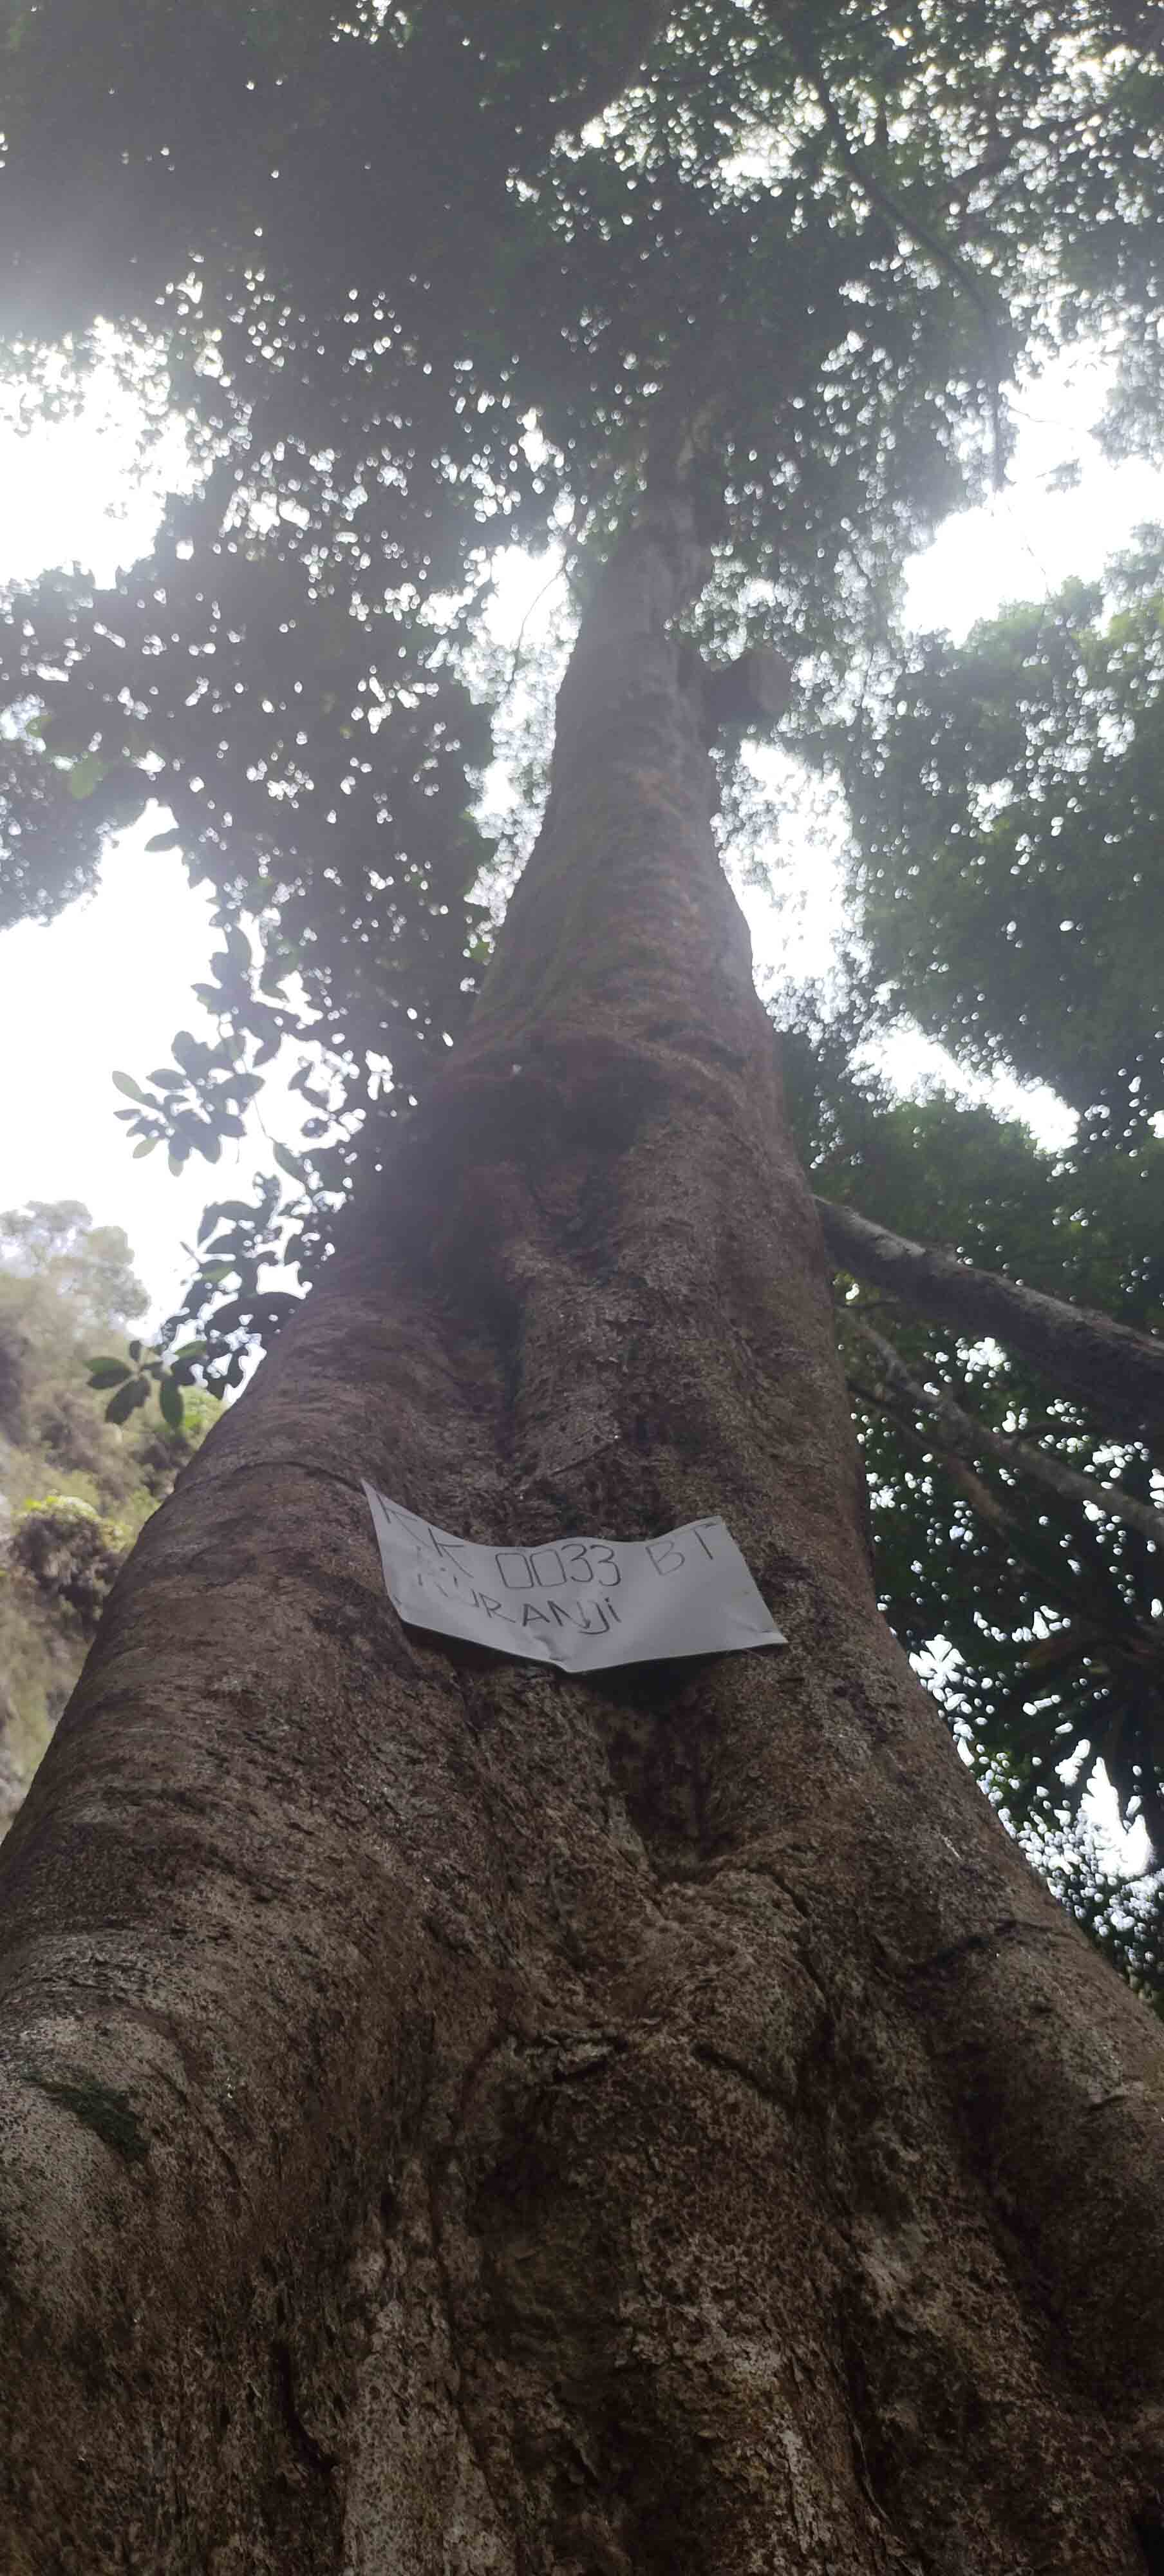 KK 0033 BT
KURANJi